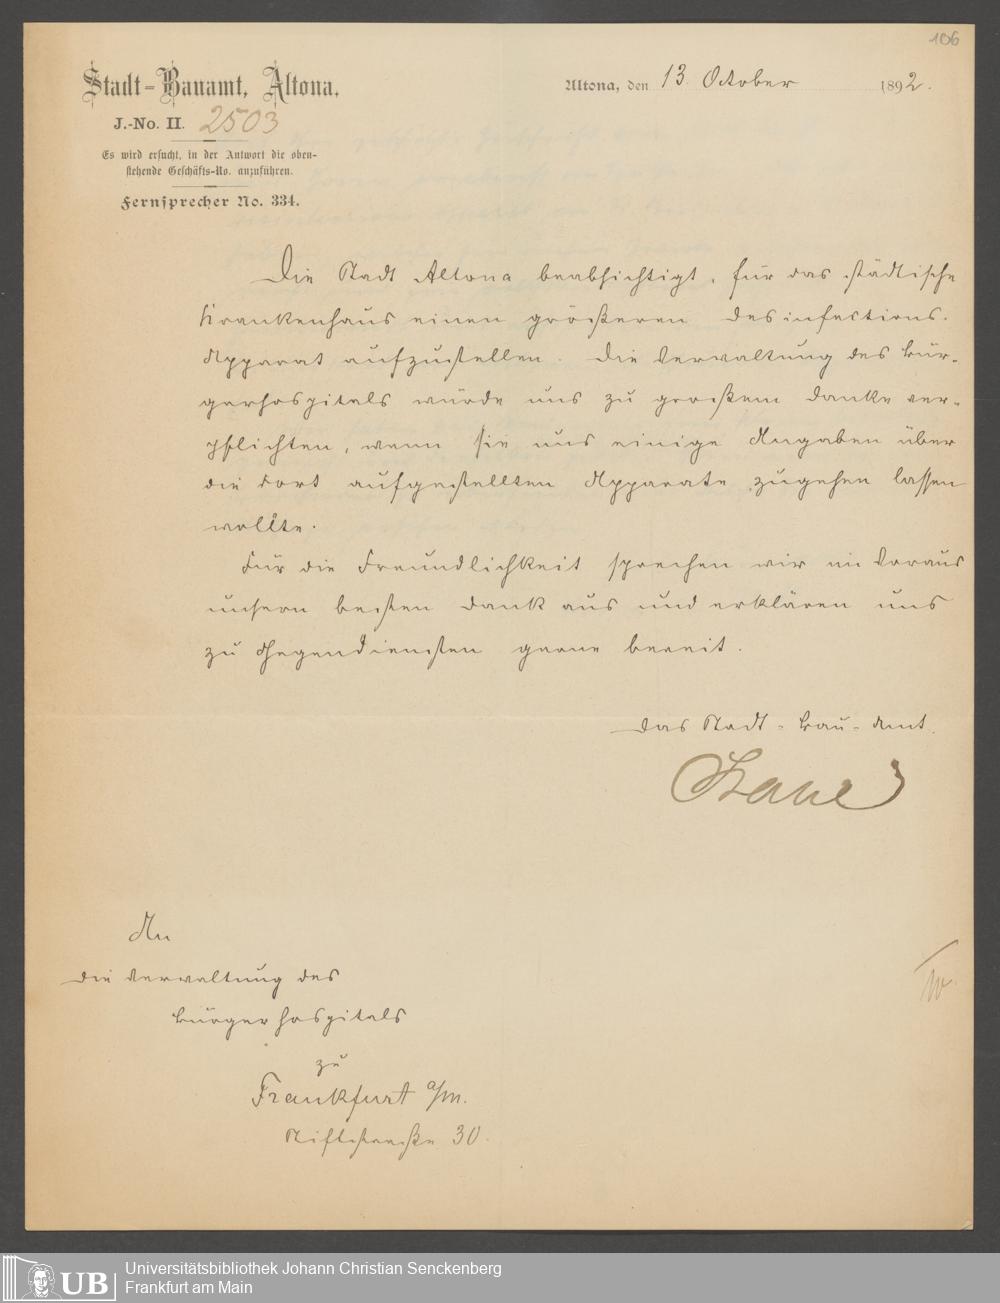 106
Stadt-Bauamt, Altona.
Altona, den 13. October 1892.
J.-No. II. 2503
Es wird ersucht, in der Antwort die oben-
stehende Geschäfts-No. anzuführen.
Fernsprecher No. 334.
Die Stadt Altona beabsichtigt, für das städtische
Krankenhaus einen größeren Desinfections-
Apparat aufzustellen. Die Verwaltung des Bür-
gerhospitals würde uns zu großem Danke ver-
pflichten, wenn sie uns einige Angaben über
die dort aufgestellten Apparate zugehen lassen
wollte.
Für die Freundlichkeit sprechen wir im Voraus
unsern besten Dank aus und erklären uns
zu Gegendiensten gerne bereit.
Das Stadt-Bau-Amt.
An
die Verwaltung des
Bürgerhospitals
zu
Frankfurt a/m.
Stiftstraße 30.
UB
Universitätsbibliothek Johann Christian Senckenberg
Frankfurt am Main